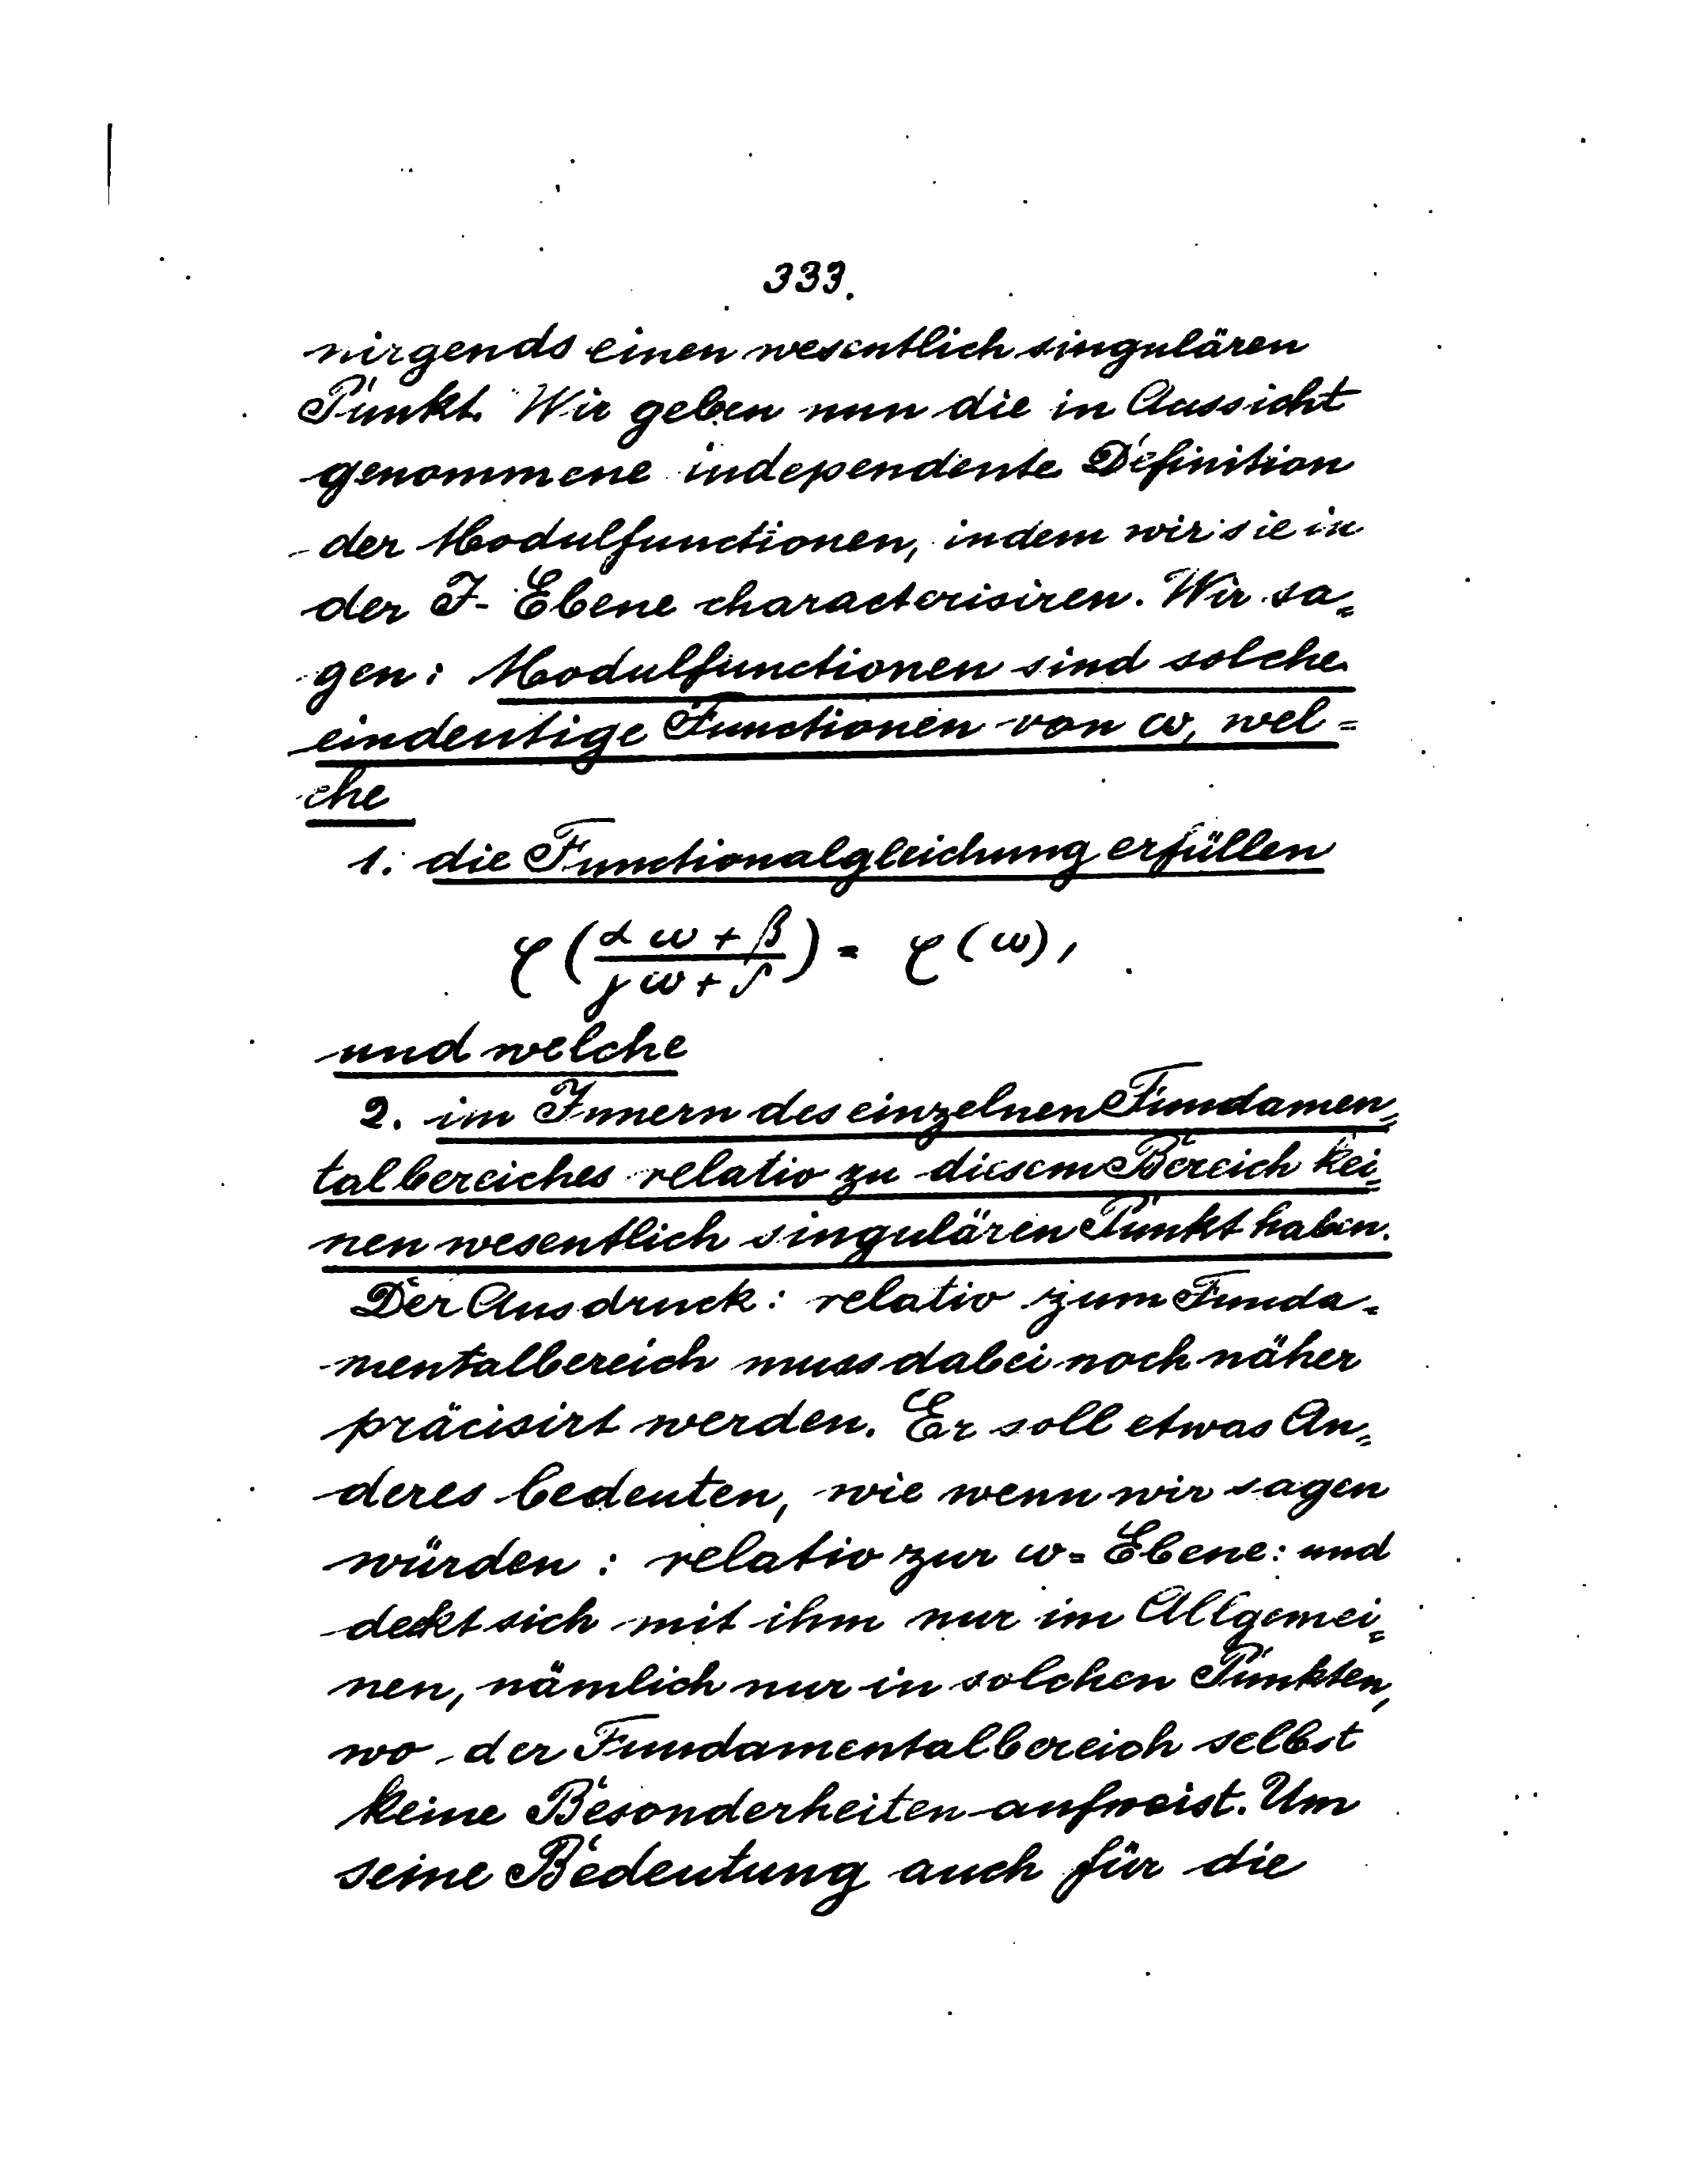 333.
nirgends einen wesentlich singulären
Punkt. Wir geben nun die in Aussicht
genommene independente Definition
der Modulfunctionen, indem wir sie in
der J-Ebene characterisiren. Wir sa=
gen: Modulfunctionen sind solche
eindeutige Functionen von ω, wel=
che
1. die Functionalgleichung erfüllen
φ(αω+β/γω+δ) = φ(ω),
und welche
2. im Innern des einzelnen Fundamen=
talbereiches relativ zu diesem Bereich kei=
nen wesentlich singulären Punkt haben.
Der Ausdruck: relativ zum Funda=
mentalbereich muss dabei noch näher
präcisirt werden. Er soll etwas An=
deres bedeuten, wie wenn wir sagen
würden: relativ zur ω=Ebene: und
deckt sich mit ihm nur im Allgemei=
nen, nämlich nur in solchen Punkten,
wo der Fundamentalbereich selbst
keine Besonderheiten aufweist. Um
seine Bedeutung auch für die